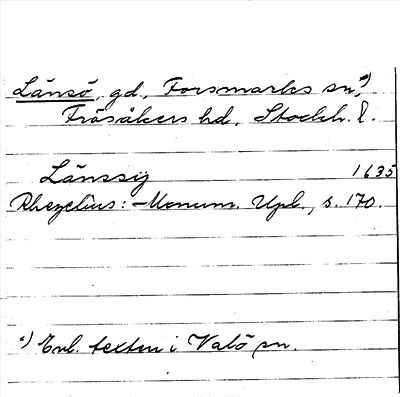 Länsö, gd, Forsmarks sn,*)
Frösåkers hd, Stockh. l.
Länssiö 1635
Rhezelius: Monum. Upl., s. 170.
*) Enl. texten i Valö sn.